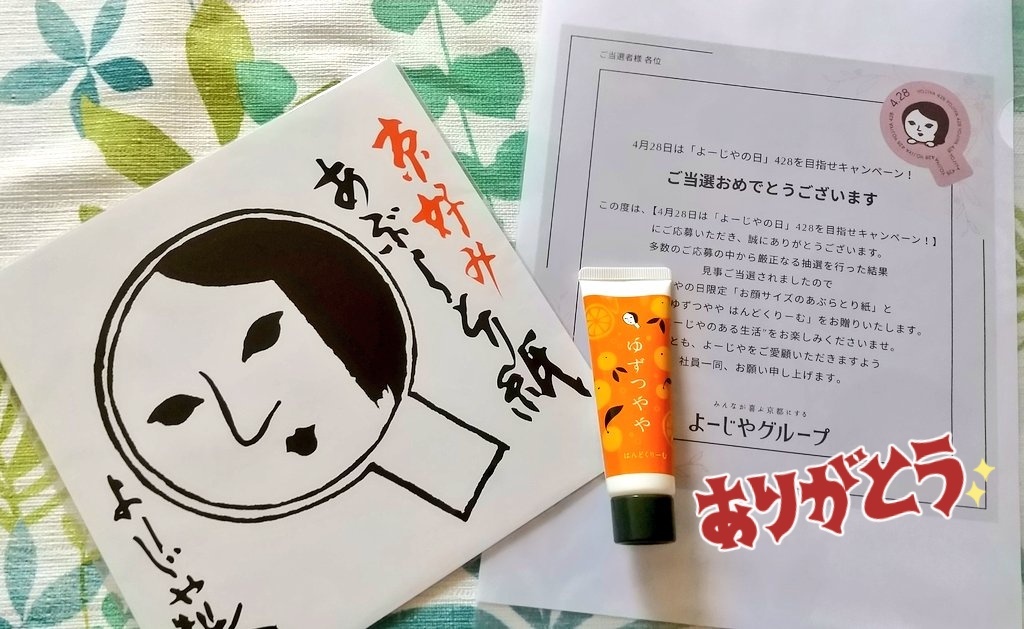 京好み
あぶらとり紙
よーじや
ゆずつやや
はんどくりーむ
ご当選者様 各位
4.28
4月28日は「よーじやの日」428を目指せキャンペーン！
ご当選おめでとうございます
この度は、【4月28日は「よーじやの日」428を目指せキャンペーン！】
にご応募いただき、誠にありがとうございます。
多数のご応募の中から厳正なる抽選を行った結果
見事ご当選されましたので
やの日限定「お顔サイズのあぶらとり紙」と
ゆずつやや はんどくりーむ」をお贈りいたします。
ーじやのある生活”をお楽しみくださいませ。
とも、よーじやをご愛顧いただきますよう
社員一同、お願い申し上げます。
みんなが喜ぶ京都にする
よーじやグループ
ありがとう